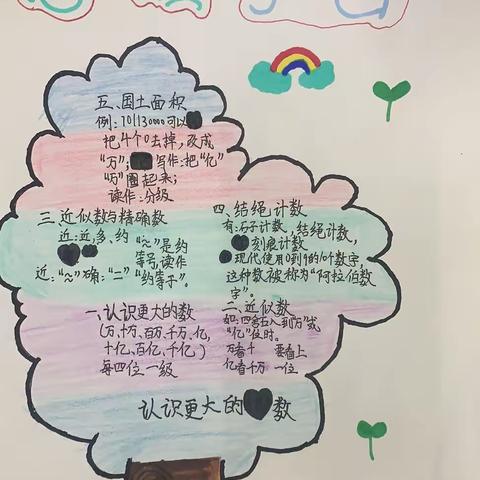 五、国土面积
例:70113000可以
把4个0去掉,改成
“万”; 写作:把“亿”
“万”圈起来;
读作:分级
三、近似数与精确数
近:近,多、约
“~”是约
等号,读作
近:“~”确:“=”“约等子”。
四、结绳计数
有:石子计数,结绳计数,
刻痕计数
现代使用0到9的10个数字,
这种数被称为“阿拉伯数
字”。
一、认识更大的数
(万、十万、百万、千万、亿,
十亿、百亿、千亿)
每四位一级
二、近似数
如:四舍五入到“万”或
“亿”位时。
万看千 要看上
亿看千万 一位
认识更大的数